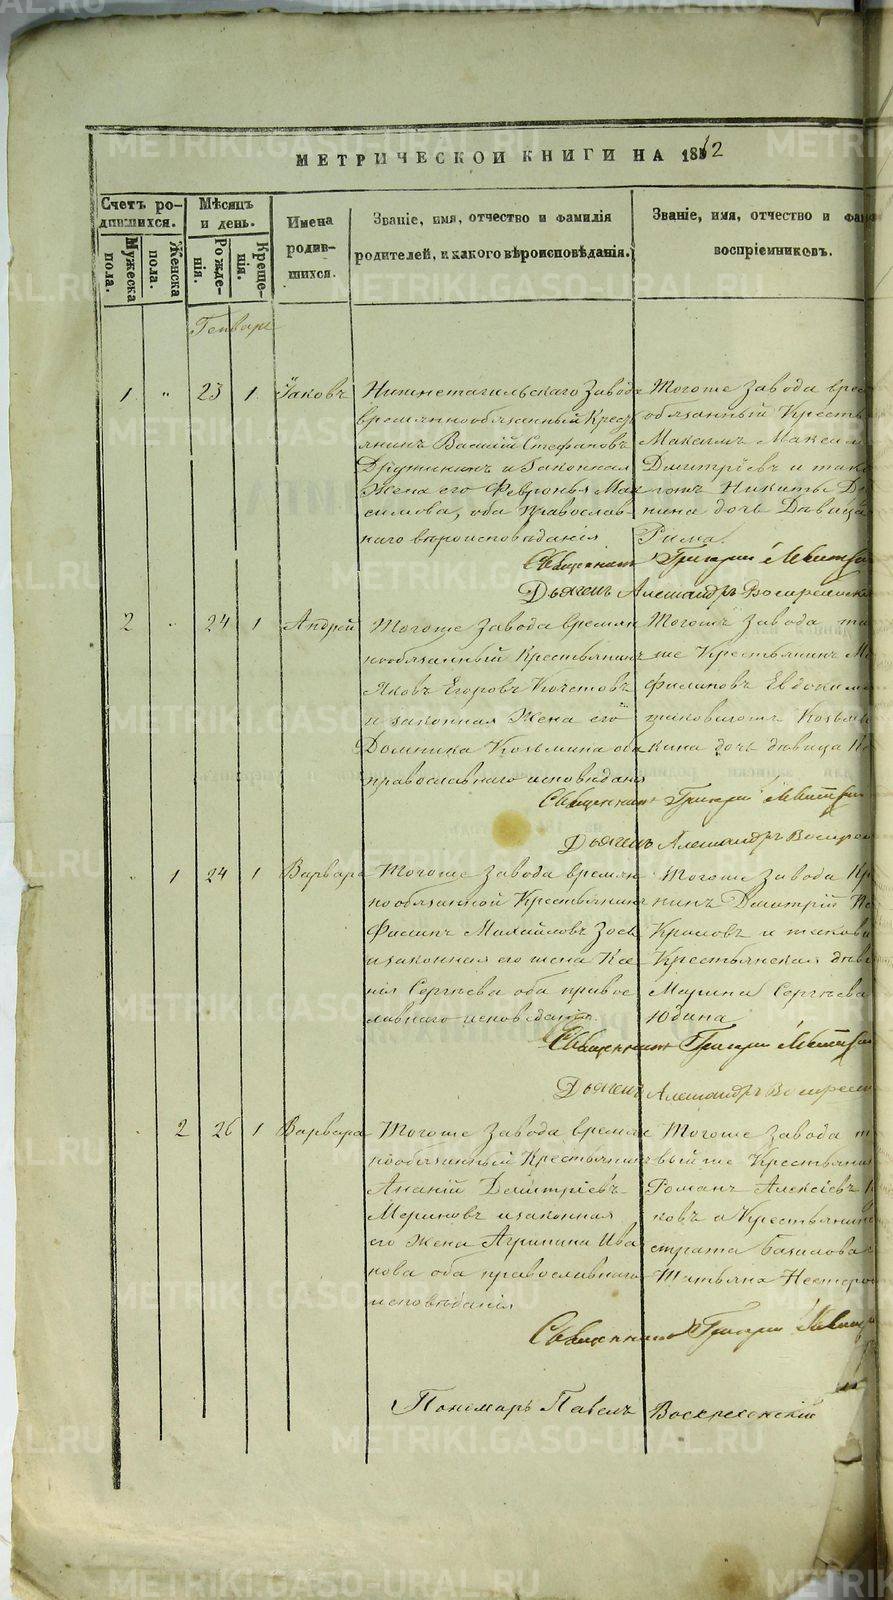 МЕТРИЧЕСКОЙ КНИГИ НА 1862
Счетъ ро-
дившихся.
Мѣсяцъ
и день.
Мужеска
пола.
Женска
пола.
Рожде-
нія.
Креще-
нія.
Имена
родив-
шихся.
Званіе, имя, отчество и фамилія
родителей, и какого вѣроисповѣданія.
Званіе, имя, отчество и фам
воспріемниковъ.
Генварь
1 " 23 1 Іаковъ
Нижнетагильскаго Завода
временнообязанный Кресть
янинъ Василій Стефановъ
и Законная
Жена его Февронья Мак
симова, оба Православ
наго вѣроисповѣданія
Тогоже Завода врем
обязанный Кресть
Максимъ Максим
Дмитріевъ и тако
гожъ Никиты
нина дочь Дѣвица
Священникъ Григорій
Дьяконъ Александръ Воскресенск
2 " 24 1 Андрей
Тогоже Завода времян
нообязанный Крестьянинъ
Яковъ Егоровъ Кочетовъ
и законная Жена его
Домника Козьмина оба
православнаго исповѣданія
Тогожъ Завода та
же Крестьянинъ
Филиповъ Евдоким
таковагожъ Козьмы
кина дочь дѣвица
Священникъ Григорій
Дьяконъ Александръ Воскрес
" 1 24 1 Варвара
Тогоже Завода времян
нообязанной Крестьянинъ
Филипъ Михайловъ
и законная его жена Ксе
нія Сергѣева оба правос
лавнаго исповѣданія
Тогоже Завода Кр
нинъ Дмитрій
и такова
Крестьянская дѣв
Марина Сергѣева
Юдина
Священникъ Григорій
Дьяконъ Александръ Воскресен
" 2 26 1 Варвара
Тогоже Завода времян
нообязанный Крестьянинъ
Ананій Дмитріевъ
Мериновъ и законная
его Жена Агрипина Ива
нова оба православнаго
исповѣданія
Тогоже Завода т
вый же Крестьянин
Романъ Алексѣевъ
ковъ и Крестьянин
Татьяна Нестеро
Священникъ Григорій
Пономарь Павелъ Воскресенскій
METRIKI.GASO-URAL.RU